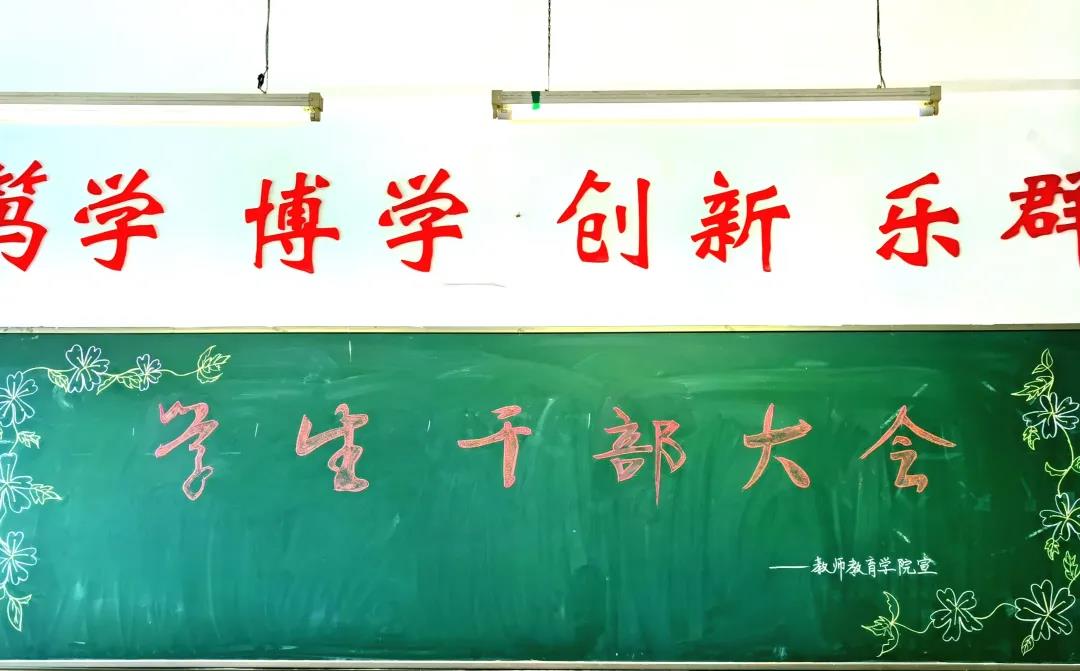 笃学 博学 创新 乐群
学生干部大会
——教师教育学院宣